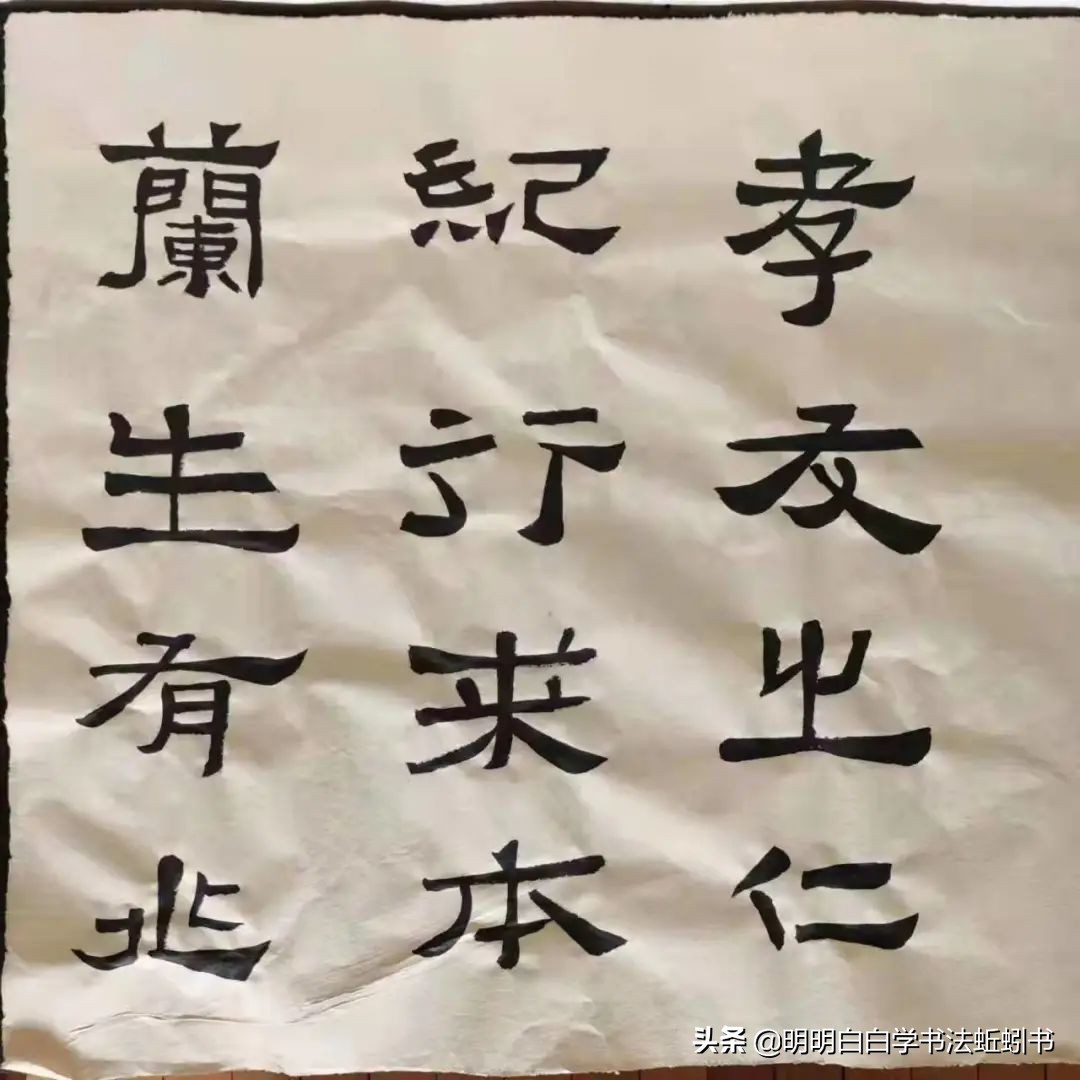 孝友之仁
紀行来本
蘭生有芷
头条 @明明白白学书法蚯蚓书